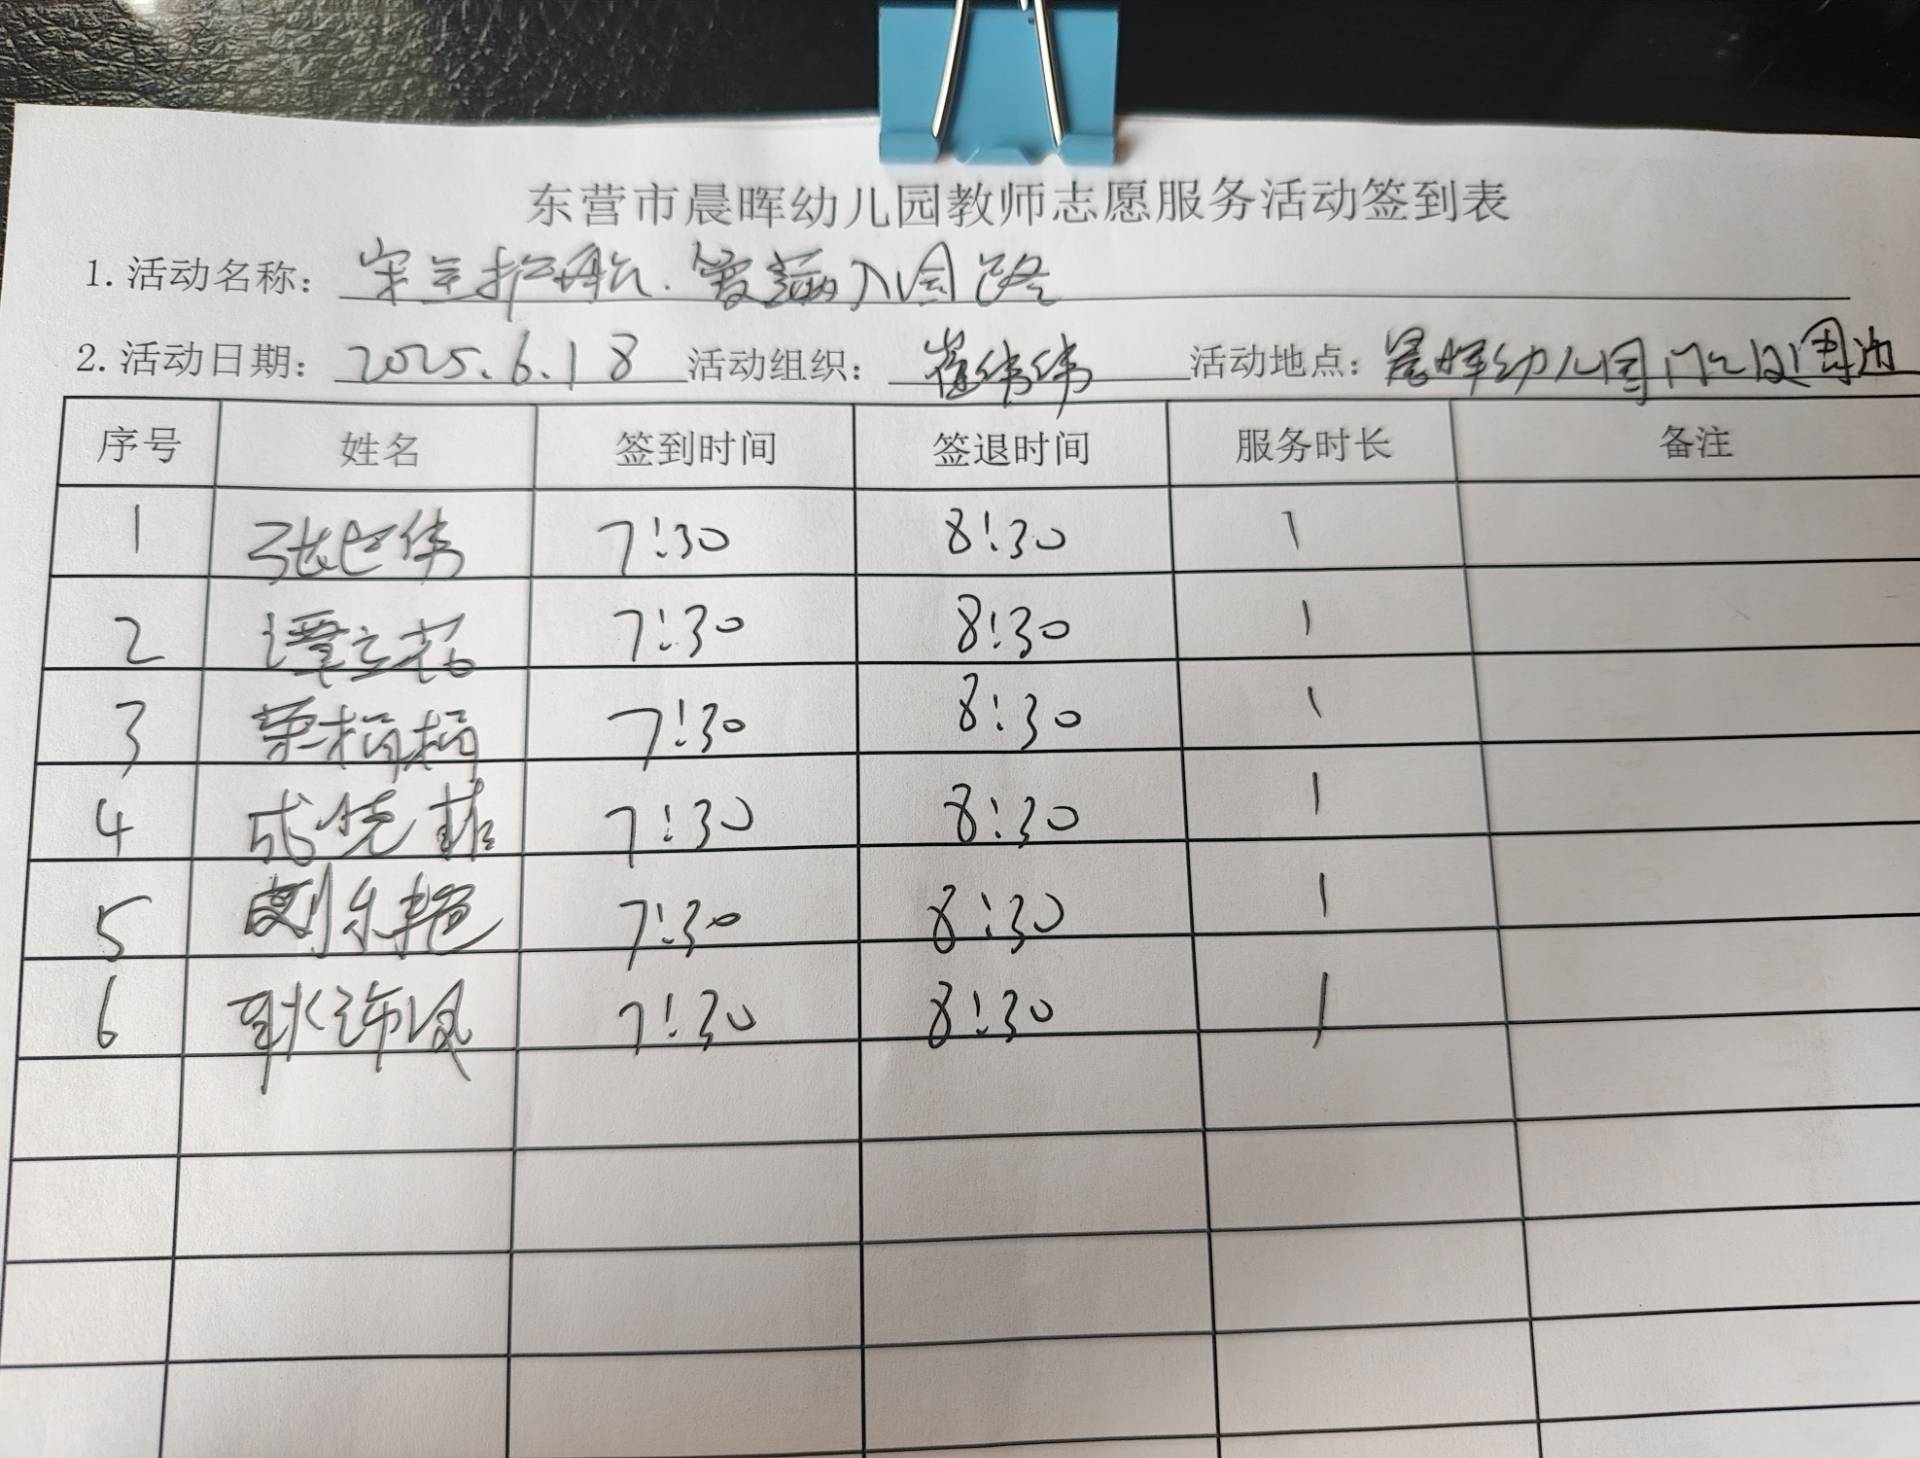 东营市晨晖幼儿园教师志愿服务活动签到表
1.活动名称：安全护航.爱满入园路
2.活动日期：2025.6.18 活动组织：崔伟伟 活动地点：晨晖幼儿园门口及周边
序号 姓名 签到时间 签退时间 服务时长 备注
1 7:30 8:30 1
2 谭立花 7:30 8:30 1
3 荣娟娟 7:30 8:30 1
4 成晓菲 7:30 8:30 1
5 刘乐艳 7:30 8:30 1
6 7:30 8:30 1